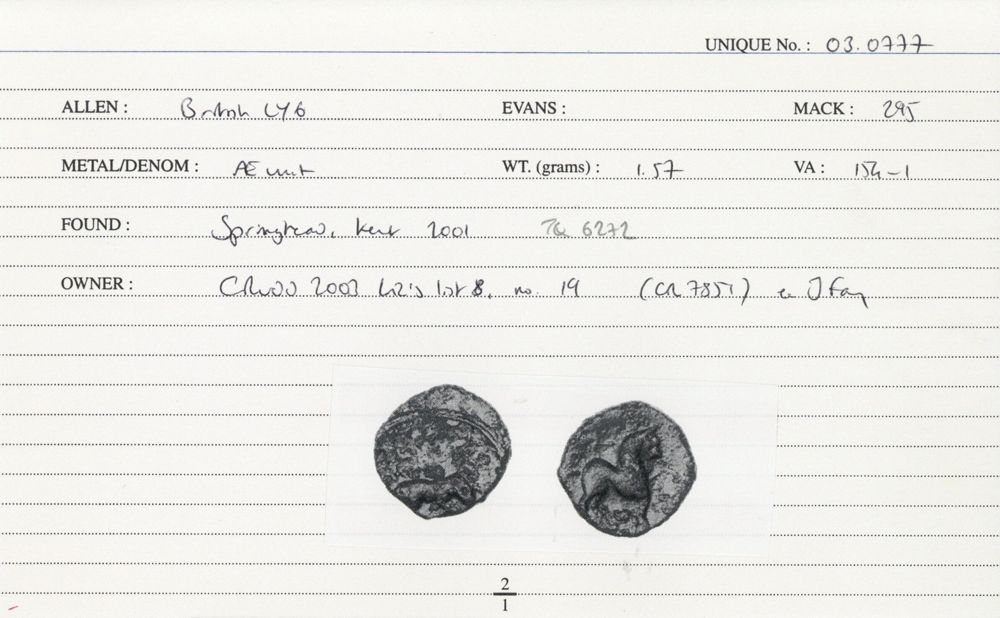 UNIQUE No. : 03.0777
ALLEN : British LY6 EVANS : MACK : 295
METAL/DENOM : Æ unit WT. (grams) : 1.57 VA : 154-1
FOUND : Springhead, Kent 2001 TQ 6272
OWNER : 2003 list lot 8, no. 19 (CR 7851) ex J Fay
2
1